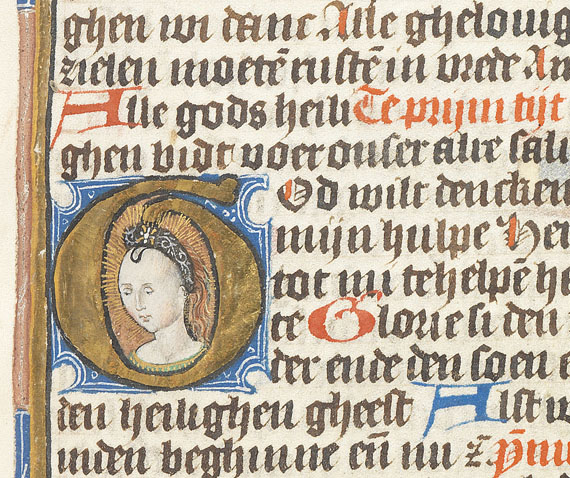 ghen wi danc Alle ghelouig
zielen moetē rustē in vrede An
Alle gods heili Te prijm tijt
ghen bidt voer onser alre sali
GOd wilt dencken
mijn hulpe Her
tot mi te helpē he
te Glorie si den
der ende den soen e
den heilighen gheest Alst w
inden beghinne eñ nu z̄